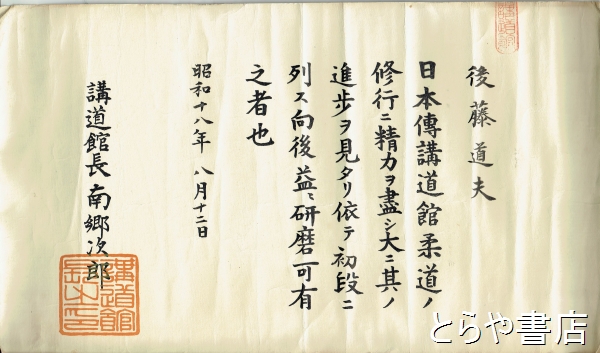 後藤道夫
日本傳講道館柔道ノ
修行ニ精力ヲ盡シ大ニ其ノ
進歩ヲ見タリ依テ初段ニ
列ス向後益〻研磨可有
之者也
昭和十八年 八月十二日
講道館長 南郷次郎
講道館
長之印
とらや書店